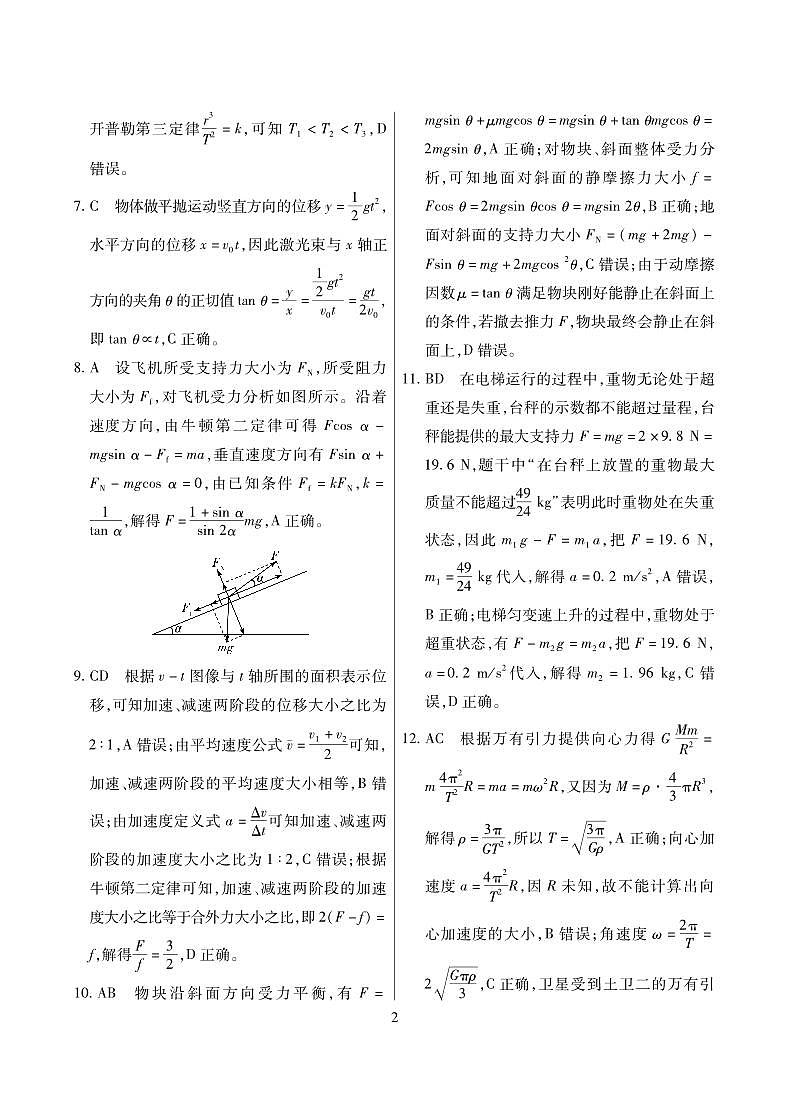 开普勒第三定律r³/T² = k,可知 T₁ < T₂ < T₃,D
错误。
7. C 物体做平抛运动竖直方向的位移 y = 1/2 gt²,
水平方向的位移 x = v₀t,因此激光束与 x 轴正
方向的夹角 θ 的正切值 tan θ = y/x = (1/2 gt²)/(v₀t) = gt/(2v₀),
即 tan θ ∝ t,C 正确。
8. A 设飞机所受支持力大小为 F_N,所受阻力
大小为 F_f,对飞机受力分析如图所示。沿着
速度方向,由牛顿第二定律可得 Fcos α −
mgsin α − F_f = ma,垂直速度方向有 Fsin α +
F_N − mgcos α = 0,由已知条件 F_f = kF_N,k =
1/tan α,解得 F = (1 + sin α)/(sin 2α) mg,A 正确。
F
F
α
F_f
α
mg
9. CD 根据 v − t 图像与 t 轴所围的面积表示位
移,可知加速、减速两阶段的位移大小之比为
2∶1,A 错误;由平均速度公式 v̄ = (v₁ + v₂)/2 可知,
加速、减速两阶段的平均速度大小相等,B 错
误;由加速度定义式 a = Δv/Δt 可知加速、减速两
阶段的加速度大小之比为 1∶2,C 错误;根据
牛顿第二定律可知,加速、减速两阶段的加速
度大小之比等于合外力大小之比,即 2(F − f) =
f,解得 F/f = 3/2,D 正确。
10. AB 物块沿斜面方向受力平衡,有 F =
mgsin θ + μmgcos θ = mgsin θ + tan θmgcos θ =
2mgsin θ,A 正确;对物块、斜面整体受力分
析,可知地面对斜面的静摩擦力大小 f =
Fcos θ = 2mgsin θcos θ = mgsin 2θ,B 正确;地
面对斜面的支持力大小 F_N = (mg + 2mg) −
Fsin θ = mg + 2mgcos ²θ,C 错误;由于动摩擦
因数 μ = tan θ 满足物块刚好能静止在斜面上
的条件,若撤去推力 F,物块最终会静止在斜
面上,D 错误。
11. BD 在电梯运行的过程中,重物无论处于超
重还是失重,台秤的示数都不能超过量程,台
秤能提供的最大支持力 F = mg = 2 × 9.8 N =
19.6 N,题干中“在台秤上放置的重物最大
质量不能超过 49/24 kg”表明此时重物处在失重
状态,因此 m₁g − F = m₁a,把 F = 19.6 N,
m₁ = 49/24 kg 代入,解得 a = 0.2 m/s²,A 错误,
B 正确;电梯匀变速上升的过程中,重物处于
超重状态,有 F − m₂g = m₂a,把 F = 19.6 N,
a = 0.2 m/s² 代入,解得 m₂ = 1.96 kg,C 错
误,D 正确。
12. AC 根据万有引力提供向心力得 G Mm/R² =
m 4π²/T² R = ma = mω²R,又因为 M = ρ · 4/3 πR³,
解得 ρ = 3π/GT²,所以 T = √(3π/Gρ),A 正确;向心加
速度 a = 4π²/T² R,因 R 未知,故不能计算出向
心加速度的大小,B 错误;角速度 ω = 2π/T =
2√(Gπρ/3),C 正确,卫星受到土卫二的万有引
2